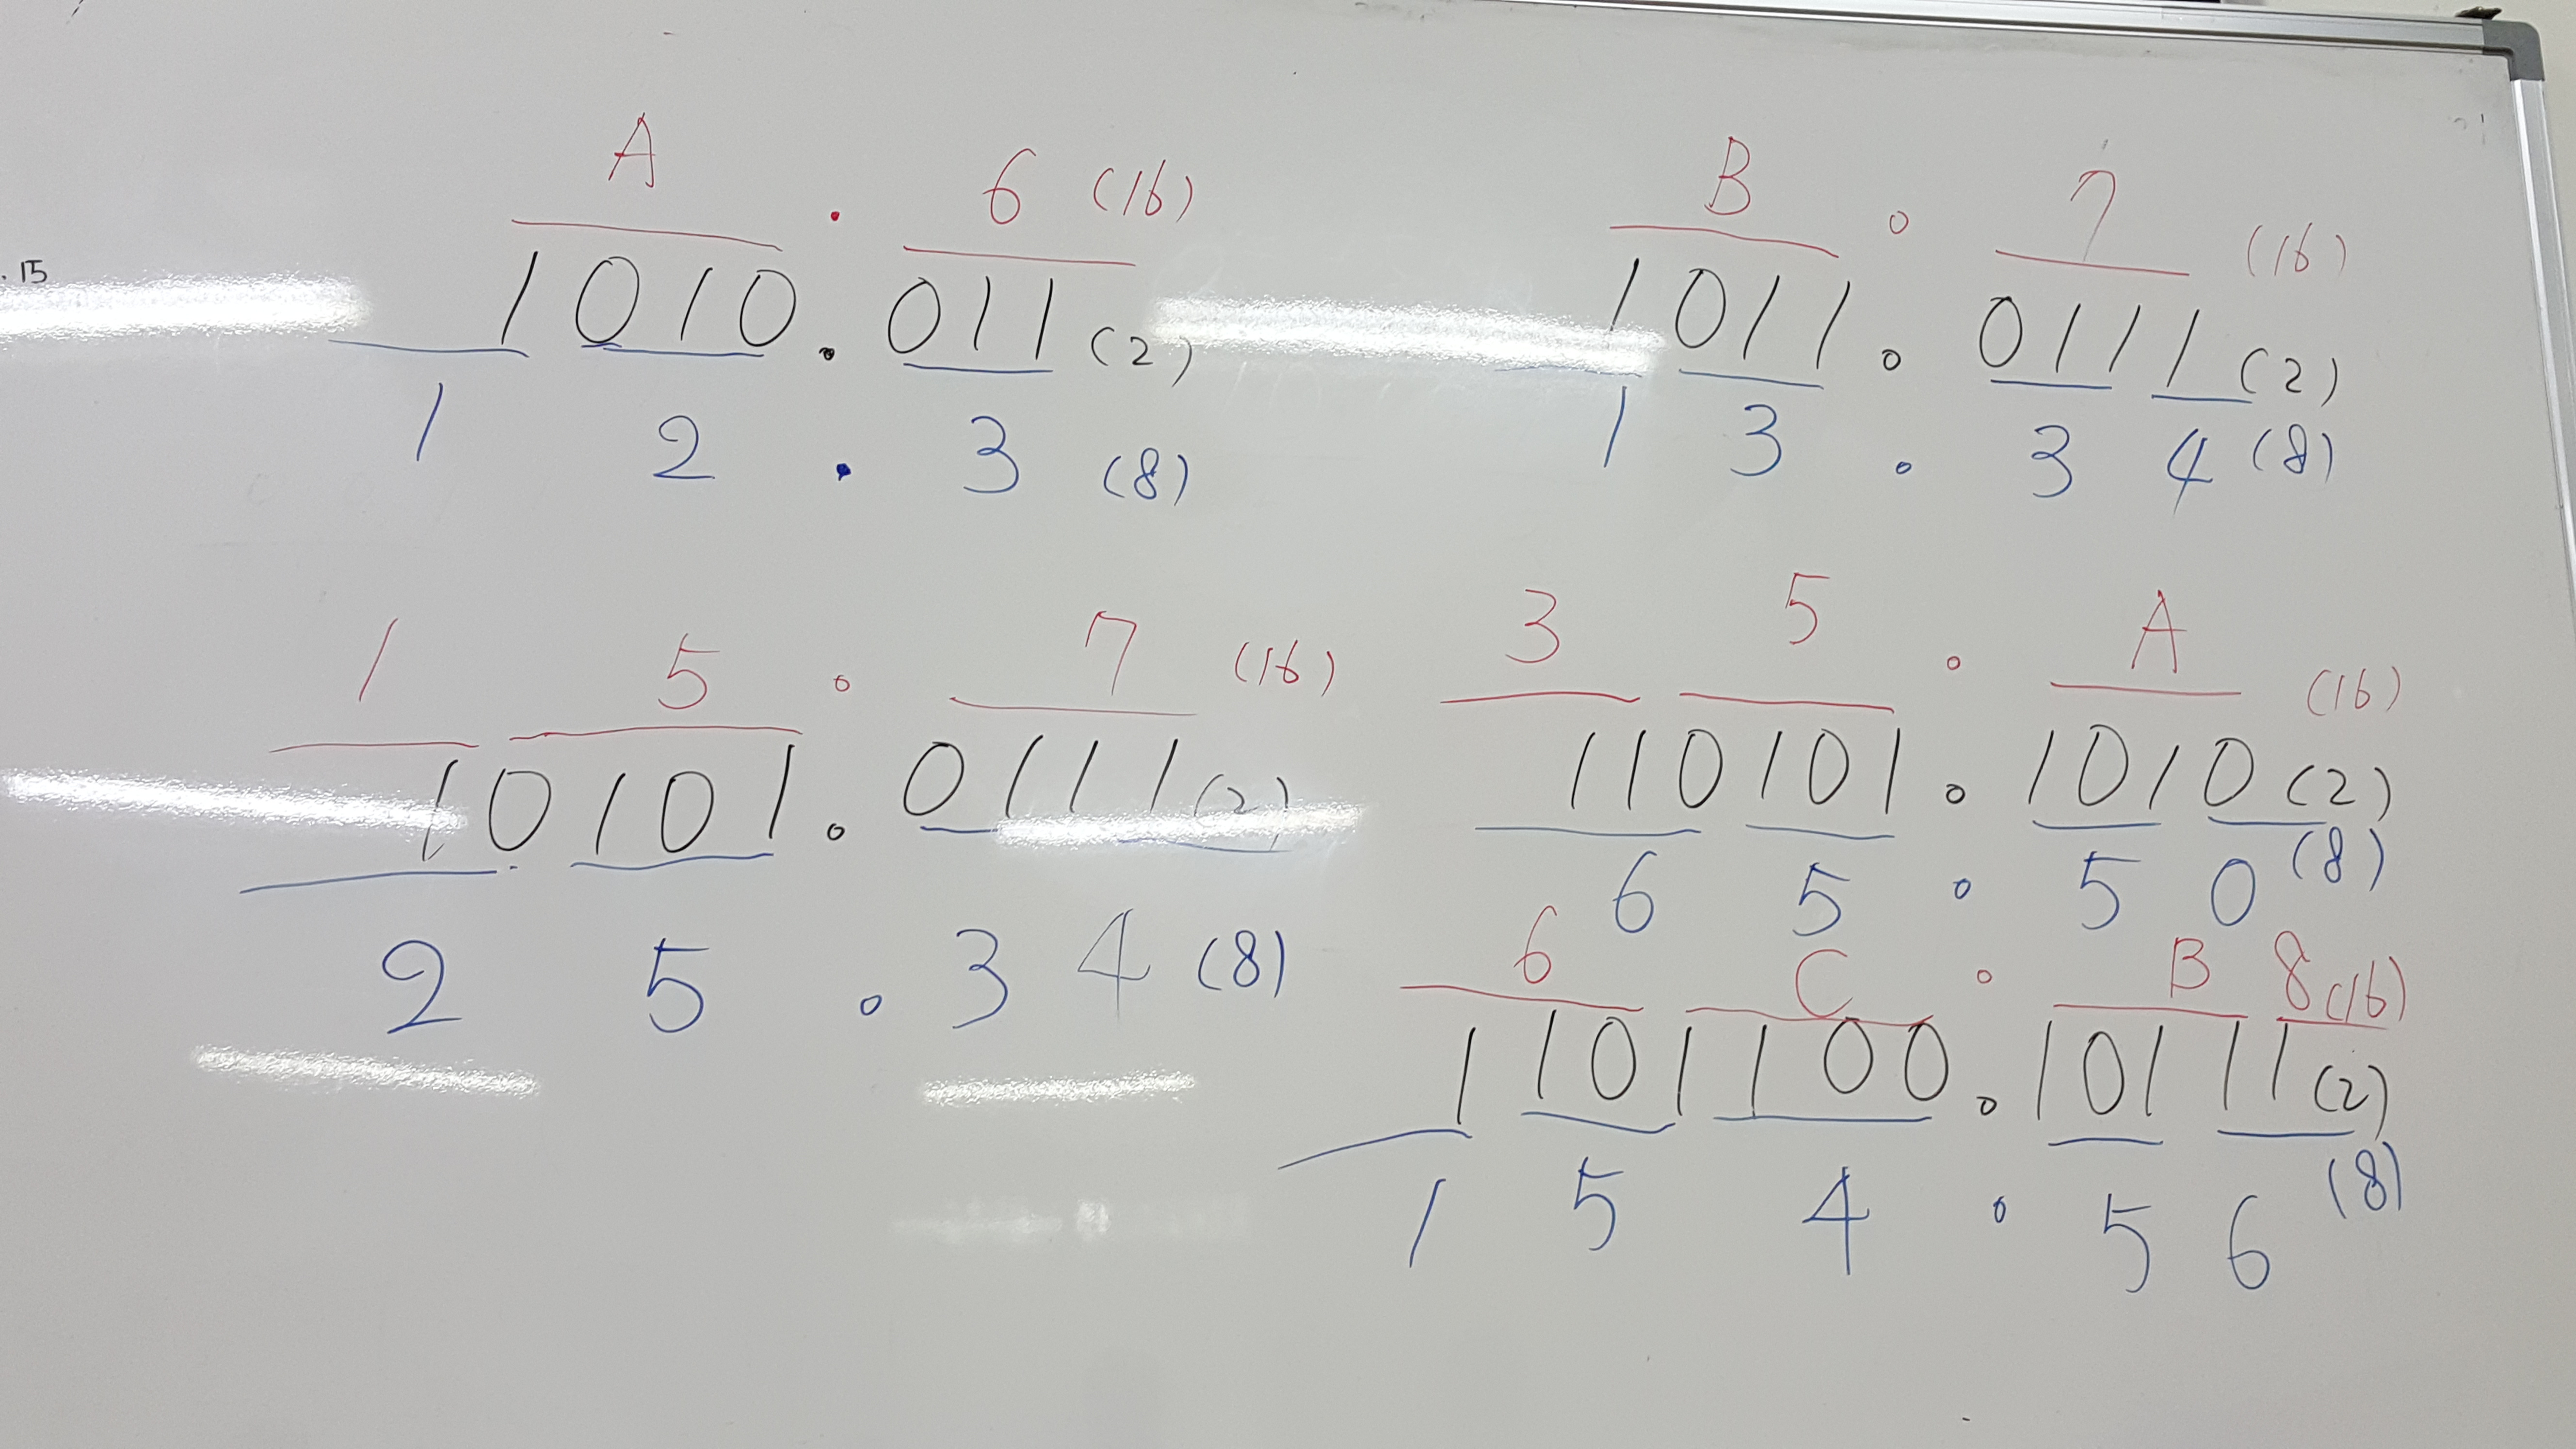 . 15
A . 6 (16)
1010.011 (2)
1 2 . 3 (8)
B . 7 (16)
1011.0111 (2)
1 3 . 3 4 (8)
1 5 . 7 (16)
10101.0111 (2)
2 5 . 3 4 (8)
3 5 . A (16)
110101.1010 (2)
6 5 . 5 0 (8)
6 C . B 8 (16)
1101100.10111 (2)
1 5 4 . 5 6 (8)